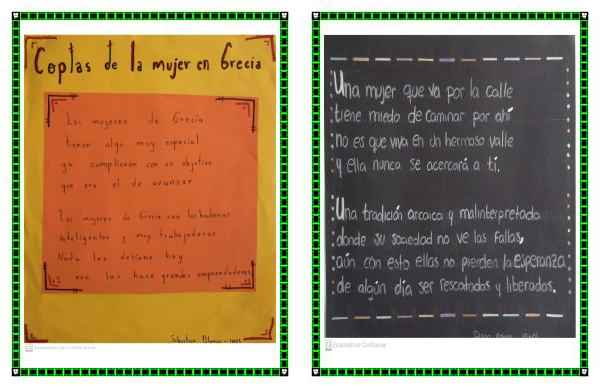 Coplas de la mujer en Grecia
Las mujeres de Grecia
tienen algo muy especial
ya cumplieron con su objetivo
que era el de avanzar
Las mujeres de Grecia son luchadoras
inteligentes y muy trabajadoras
Nada las detiene hoy
y eso las hace grandes emprendedoras
Sebastian Blanco - 1002
Escaneado con CamScanner
Una mujer que va por la calle
tiene miedo de caminar por ahí
no es que viva en un hermoso valle
y ella nunca se acercará a tí.
Una tradición arcaica y malinterpretada
donde su sociedad no ve las fallas,
aún con esto ellas no pierden la Esperanza
de algún día ser rescatadas y liberadas.
Escaneado con CamScanner